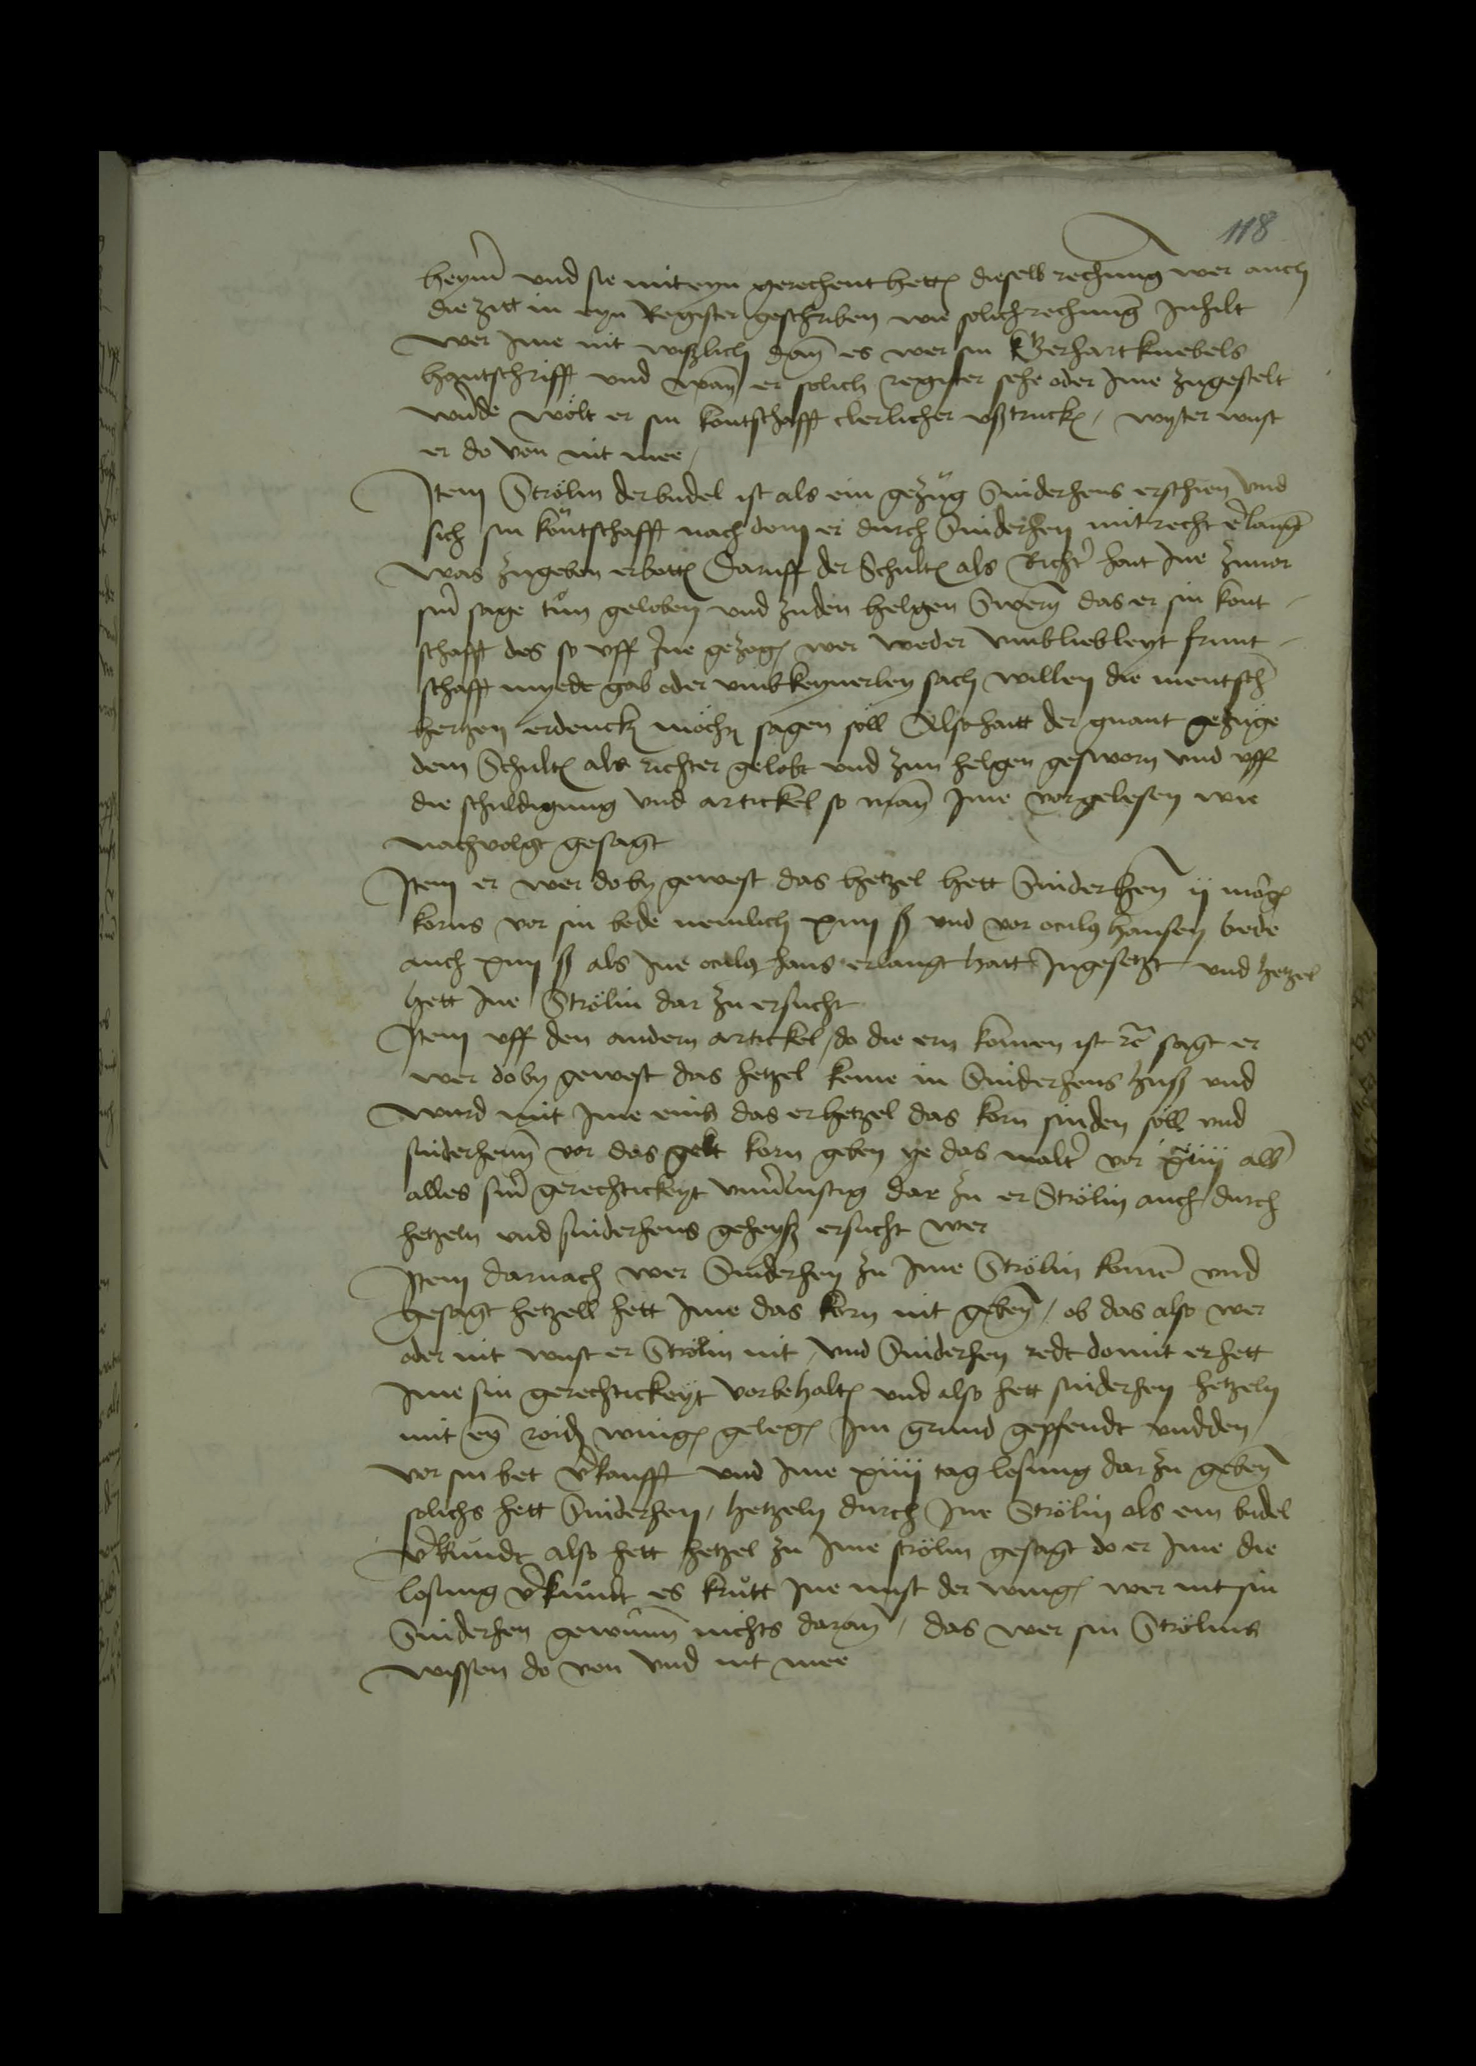 118
heym̄ und sie miteyn gerechent hett dieselb rechnung wer auch
die zitt in eyn Register geschriben wie solich rechnung Inhilt
wer Ime nit wißlich dan̄ es wer sin Gerhart knebels
hantschrifft und wan̄ er solich register sehe oder Ime zugestelt
wurde wolt er sin kontschafft clerlicher ußtruck, wyter wust
er do von nit mee
Item Strölin der budel ist als ein gezüg Sniderhens erschien und
sich sin kontschafft nach dem er durch Sniderhen mit recht erlangt
was zugeben erbott Daruff der Schult als Richter hait Ine zuuor
sin̄ sage tun geloben und zu den helgen Swern das er sin kont
schafft des so uff Ine gezog wer weder umb lieb leyt frunt
schafft myede gab oder umb keynerley sach willen die mentsch
hertzen erdenck möcht sagen söll Also hatt der gnant gezüge
dem Schult als richter gelobt und zun helgen gesworn und uff
die schuldigung und artickel so man̄ Ime vorgelesen wie
nachvolgt gesagt
Item er wer doby gewest das hetzel hett Sniderhen ij
korns vor sin bede nemlich xiiij ß und vor hansen bede
auch xiiij ß als Ine hans erlangt hatt Ingesetzt und hetzel
hett Ine Strölin dar zu ersucht
Item uff den andern artickel, do die ern komen ist sagt er
wer doby gewest das hetzel keme in Sniderhens huß und
wurd mit Ime eins das er hetzel das korn sniden söll und
sniderhenn̄ vor das gelt korn geben ye das malter vor alb
alles sin̄ gerechtickeyt dar zu er Strölin auch durch
hetzeln und sniderhens geheyß ersucht wer
Item darnach wer Sniderhen zu Ime Strölin komē und
gesagt hetzell hett Ime das korn nit geben, ob das also wer
oder nit wust er Strölin nit, und Sniderhen redt domit er hett
Ime sin gerechtickeyt vorbehalt und also hett sniderhen hetzeln
mit wing geleg Im grund gepfendt und den
vor sin bet v̄kaufft und Ime xiiij tag losung dar zu geben
solichs hett Sniderhen, hetzeln durch Ine Strölin als ein budel
v̄kundt also hett hetzel zu Ime strölin gesagt do er Ime die
losung v̄kundt es Ine der wing wer nit sin
Sniderhen gewunn̄ nichts daran, das wer sin Strölins
wissen do von und nit mee